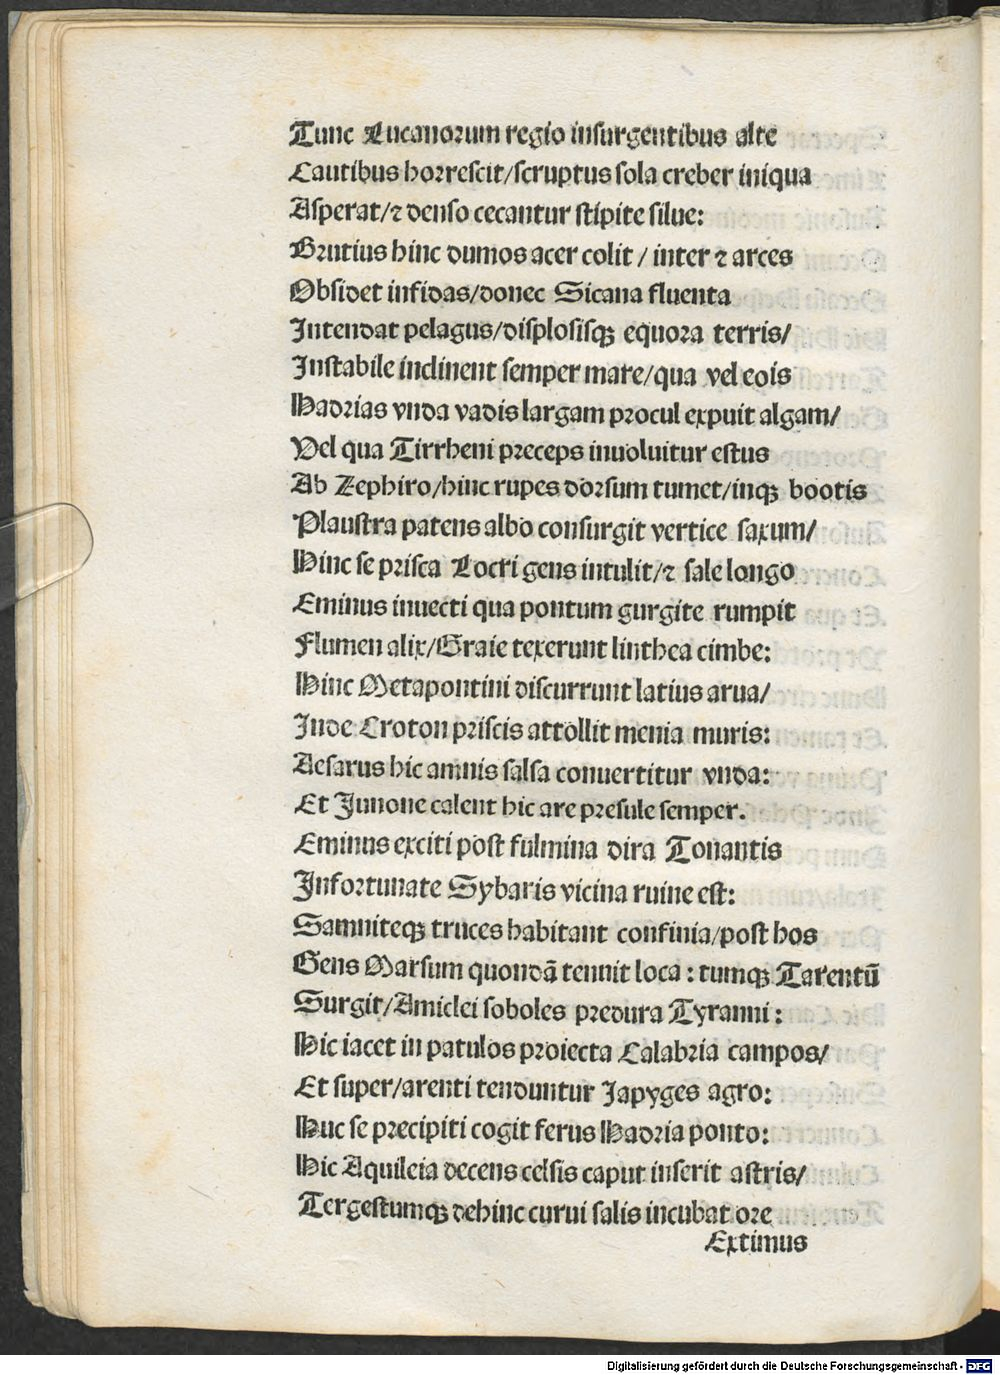 Tunc Lucanorum regio insurgentibus alte
Cautibus horrescit/scruptus sola creber iniqua
Asperat/⁊ denso cecantur stipite silue:
Brutius hinc dumos acer colit / inter ⁊ arces
Obsidet infidas/donec Sicana fluenta
Intendat pelagus/displosisqꝫ equora terris/
Instabile inclinent semper mare/qua vel eois
Hadrias vnda vadis largam procul expuit algam/
Vel qua Tirrheni preceps inuoluitur estus
Ab Zephiro/hinc rupes dorsum tumet/inqꝫ bootis
Plaustra patens albo consurgit vertice saxum/
Hinc se prisca Locri gens intulit/⁊ sale longo
Eminus inuecti qua pontum gurgite rumpit
Flumen alix/Graie texerunt linthea cimbe:
Hinc Metapontini discurrunt latius arua/
Inde Croton priscis attollit menia muris:
Aesarus hic amnis salsa conuertitur vnda:
Et Junone calent hic are presule semper.
Eminus exciti post fulmina dira Tonantis
Infortunate Sybaris vicina ruine est:
Samniteqꝫ truces habitant confinia/post hos
Gens Marsum quondā tennit loca : tumqꝫ Tarentū
Surgit/Amiclei soboles predura Tyranni :
Hic iacet in patulos proiecta Calabria campos/
Et super/arenti tenduntur Japyges agro:
Huc se precipiti cogit ferus Hadria ponto:
Hic Aquileia decens celsis caput inserit astris/
Tergestumqꝫ dehinc curui salis incubat ore
Extimus
Digitalisierung gefördert durch die Deutsche Forschungsgemeinschaft - DFG